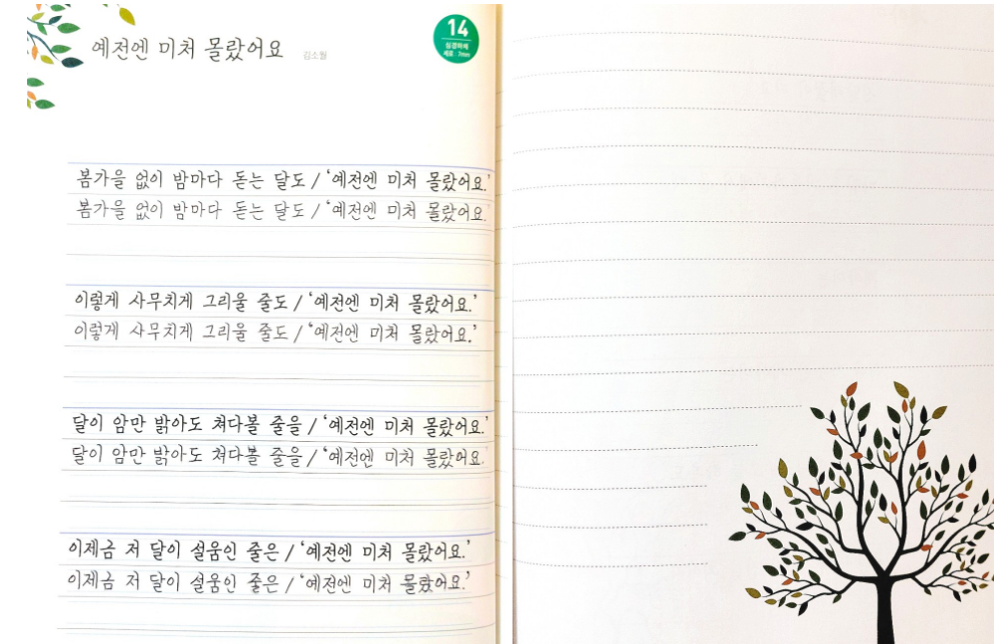 예전엔 미처 몰랐어요 김소월
14
심경하체
세로 : 7mm
봄가을 없이 밤마다 돋는 달도 / ‘예전엔 미처 몰랐어요.’
봄가을 없이 밤마다 돋는 달도 / ‘예전엔 미처 몰랐어요.’
이렇게 사무치게 그리울 줄도 / ‘예전엔 미처 몰랐어요.’
이렇게 사무치게 그리울 줄도 / ‘예전엔 미처 몰랐어요.’
달이 암만 밝아도 쳐다볼 줄을 / ‘예전엔 미처 몰랐어요.’
달이 암만 밝아도 쳐다볼 줄을 / ‘예전엔 미처 몰랐어요.’
이제금 저 달이 설움인 줄은 / ‘예전엔 미처 몰랐어요.’
이제금 저 달이 설움인 줄은 / ‘예전엔 미처 몰랐어요.’